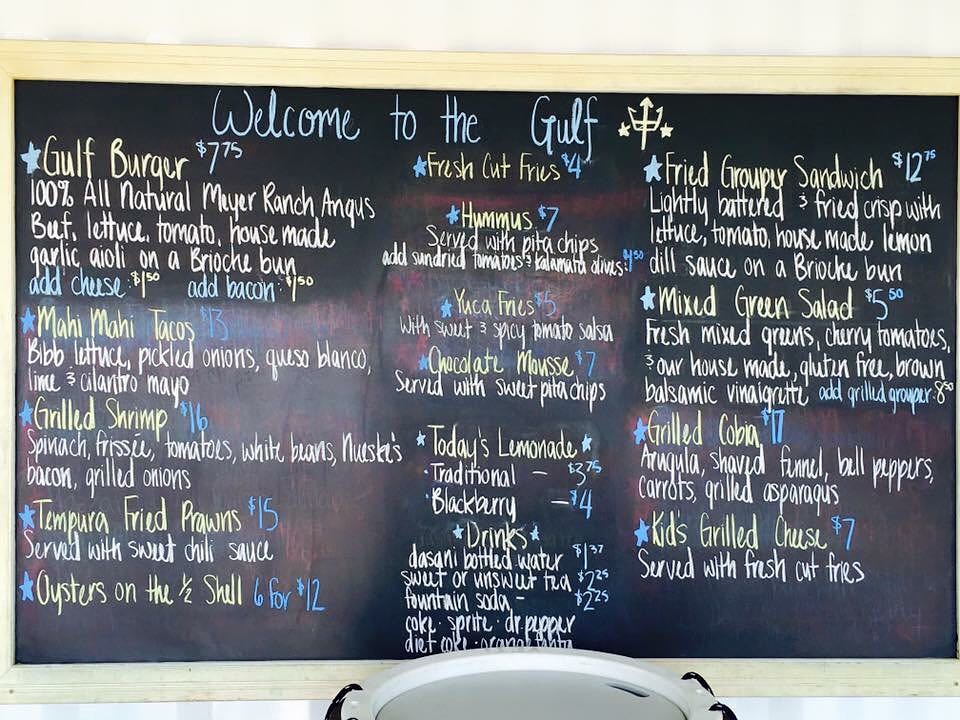 Welcome to the Gulf
Gulf Burger $7.75
100% All Natural Meyer Ranch Angus
Beef, lettuce, tomato, house made
garlic aioli on a Brioche bun
add cheese: $1.50 add bacon: $1.50
Mahi Mahi Tacos $13
Bibb lettuce, pickled onions, queso blanco,
lime & cilantro mayo
Grilled Shrimp $16
Spinach, frissée, tomatoes, white beans, Nueske's
bacon, grilled onions
Tempura Fried Prawns $15
Served with sweet chili sauce
Oysters on the ½ Shell 6 for $12
Fresh Cut Fries $4
Hummus $7
Served with pita chips
add sundried tomatoes & kalamata olives: $1.50
Yuca Fries $5
with sweet & spicy tomato salsa
Chocolate Mousse $7
Served with sweet pita chips
Today's Lemonade
· Traditional - $3.75
· Blackberry - $4
Drinks
dasani bottled water $1.37
sweet or unsweet tea $2.25
fountain soda - $2.25
coke · sprite · dr. pepper
diet coke · orange fanta
Fried Grouper Sandwich $12.75
Lightly battered & fried crisp with
lettuce, tomato, house made lemon
dill sauce on a Brioche bun
Mixed Green Salad $5.50
Fresh mixed greens, cherry tomatoes,
& our house made, gluten free, brown
balsamic vinaigrette add grilled grouper: 8.50
Grilled Cobia $17
Arugula, shaved fennel, bell peppers,
carrots, grilled asparagus
Kid's Grilled Cheese $7
Served with fresh cut fries